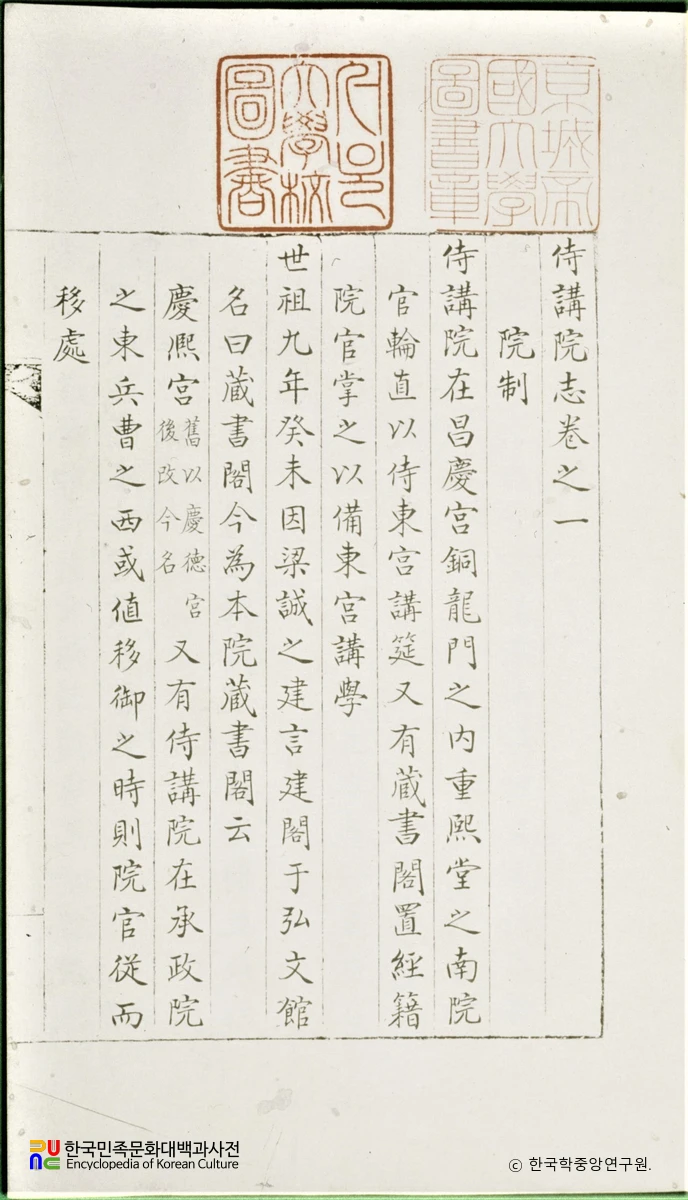 京城帝
國大學
圖書章
서울
大學校
圖書
侍講院志卷之一
院制
侍講院在昌慶宮銅龍門之內重熙堂之南院
官輪直以侍東宮講筵又有蔵書閣置經籍
院官掌之以備東宮講學
世祖九年癸未因梁誠之建言建閣于弘文館
名曰蔵書閣今為本院蔵書閣云
慶熈宮舊以慶德宮後改今名又有侍講院在承政院
之東兵曹之西或値移御之時則院官從而
移處
한국민족문화대백과사전
Encyclopedia of Korean Culture
ⓒ 한국학중앙연구원.